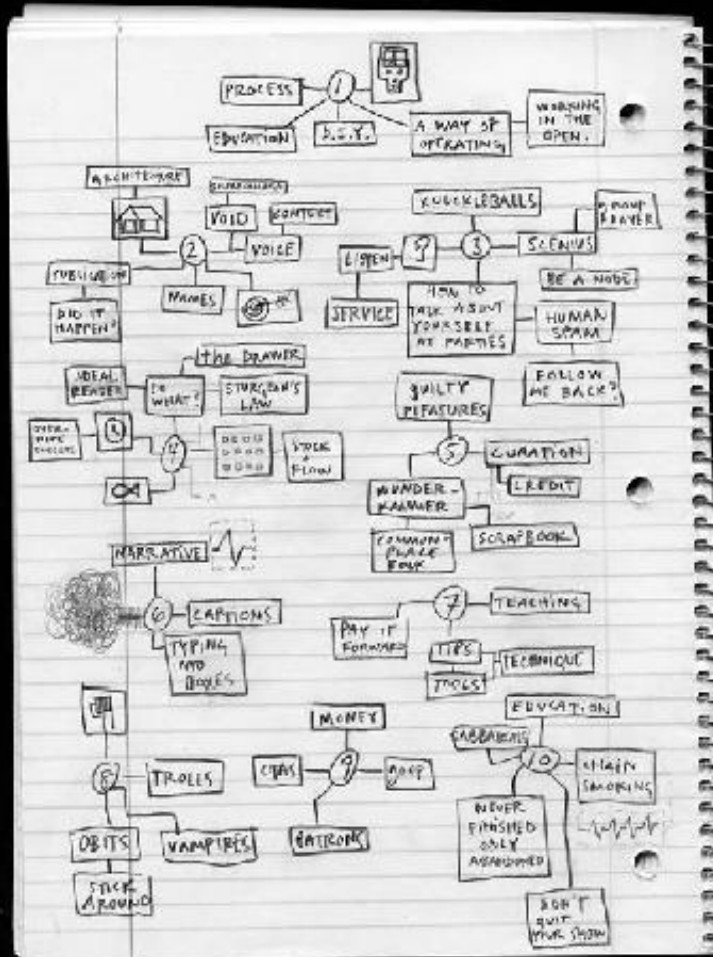 PROCESS
1
EDUCATION
D.I.Y.
A WAY OF
OPERATING
WORKING
IN THE
OPEN.
ARCHITECTURE
VOID
CONTEXT
2
VOICE
PUBLICATION
NAMES
DID IT
HAPPEN?
KNUCKLEBALLS
LISTEN
?
3
SCENIUS
BE A NODE.
SERVICE
HOW TO
TALK ABOUT
YOURSELF
AT PARTIES
HUMAN
SPAM
FOLLOW
ME BACK?
the DRAWER
IDEAL
READER
SO
WHAT?
STURGEON'S
LAW
4
STOCK
+
FLOW
GUILTY
PLEASURES
5
CURATION
CREDIT
WUNDER-
KAMMER
SCRAPBOOK
COMMON-
PLACE
BOOK
NARRATIVE
6
CAPTIONS
TYPING
INTO
BOXES
7
TEACHING
PAY IT
FORWARD
TIPS
TECHNIQUE
8
TROLLS
OBITS
VAMPIRES
STICK
AROUND
MONEY
9
PATRONS
EDUCATION
SABBATICALS
10
CHAIN
SMOKING
NEVER
FINISHED
ONLY
ABANDONED
DON'T
QUIT
YOUR SHOW